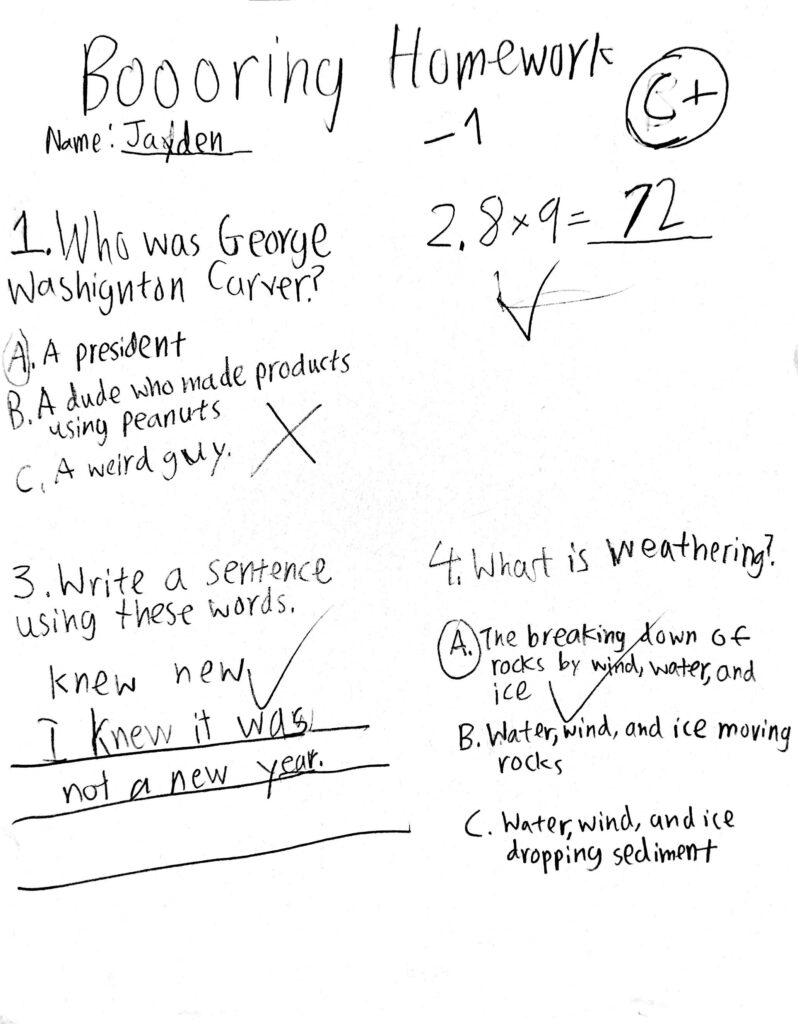 Boooring Homework
C+
Name: Jayden
-1
1. Who was George
Washignton Carver?
A. A president
B. A dude who made products
using peanuts
C. A weird guy.
2. 8 x 9 = 72
3. Write a sentence
using these words.
knew new
I knew it was
not a new year.
4. What is weathering?
A. The breaking down of
rocks by wind, water, and
ice
B. Water, wind, and ice moving
rocks
C. Water, wind, and ice
dropping sediment